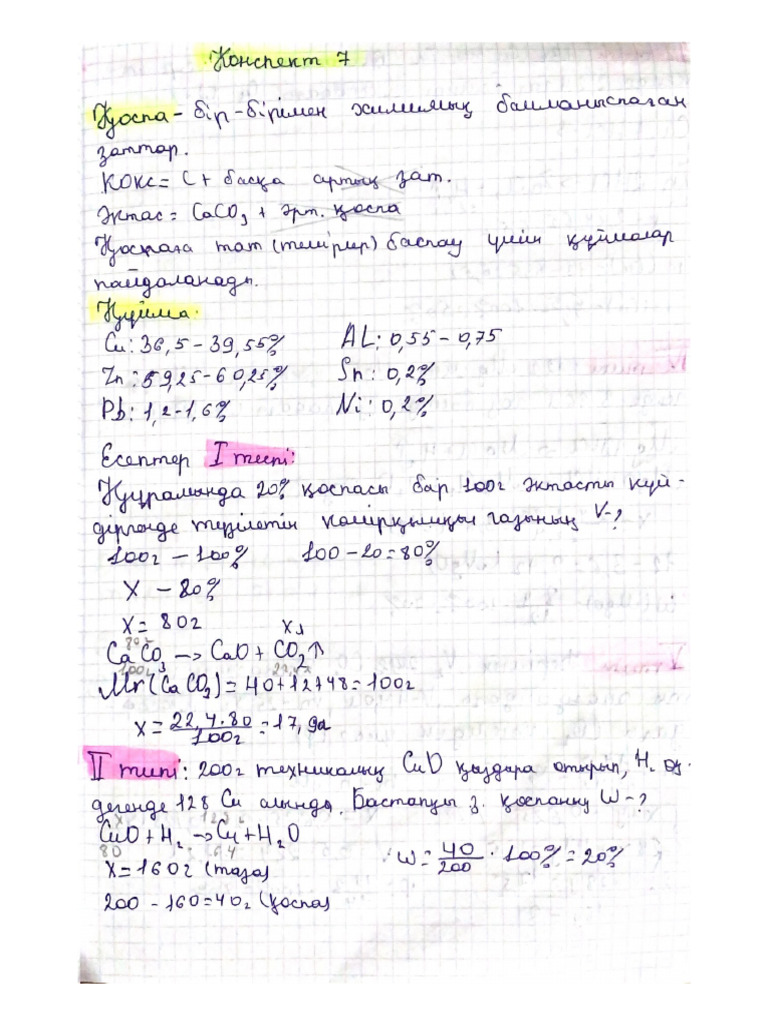 Конспект 7
Қоспа - бір-бірімен химиялық байланыспаған
заттар.
КОКС = C + басқа артық зат.
Әктас = CaCO3 + әрт. қоспа
Қоспаға тат (темірлер) баспау үшін құймалар
пайдаланады.
Құйма:
Cu: 36,5 - 39,55% AL: 0,55 - 0,75
Zn: 59,25 - 60,25% Sn: 0,2%
Pb: 1,2-1,6% Ni: 0,2%
Есептер I типі:
Құрамында 20% қоспасы бар 100г әктасты күй-
діргенде түзілетін көмірқышқыл газының V-?
100г - 100% 100 - 20 = 80%
X - 80%
X = 80г X л
80г
CaCO3 → CaO + CO2↑
100г 22,4л
Mr(CaCO3) = 40+12+48 = 100г
X = 22,4·80/100г = 17,9л
II типі: 200г техникалық CuO қыздыра отырып, H2 өң-
дегенде 128 Cu алынды. Бастапқы з. қоспаның W-?
X 128
CuO + H2 → Cu + H2O
80 64
X = 160г (таза) W = 40/200 · 100% = 20%
200 - 160 = 40г (қоспа)